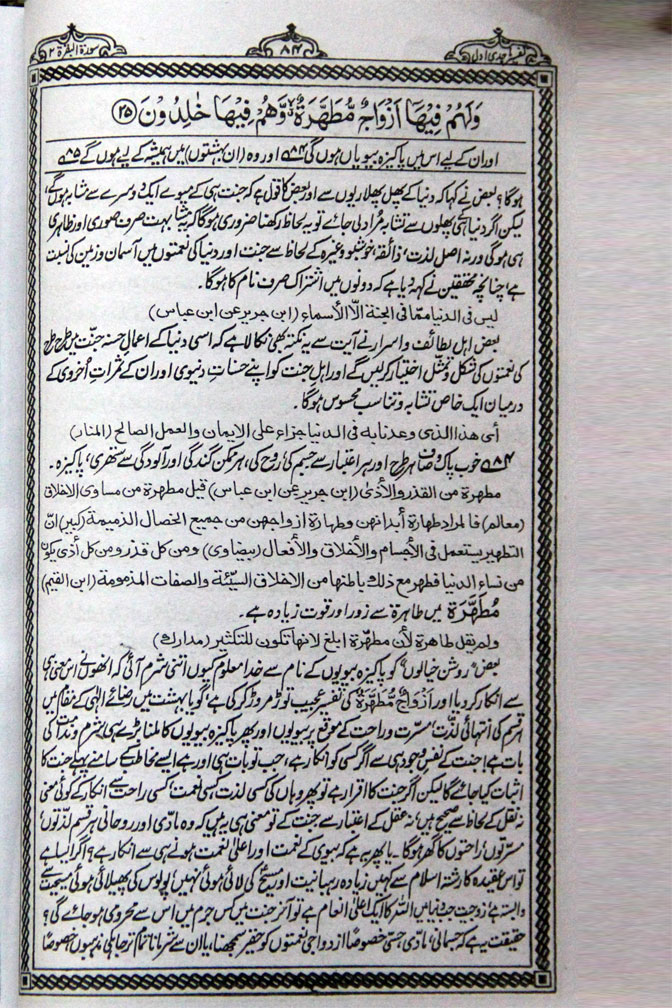 تفسیر ماجدی اول
۸۴
سورۃ البقرۃ ۲
وَلَهُمْ فِيْهَا اَزْوَاجٌ مُّطَهَّرَةٌ وَّهُمْ فِيْهَا خٰلِدُوْنَ ﴿۲۵﴾
اور ان کے لیے اس میں پاکیزہ بیویاں ہوں گی ۸۴ اور وہ (ان بہشتوں) میں ہمیشہ کے لیے ہوں گے ۸۵
ہوگا؟ بعض نے کہا کہ دنیا کے پھل پھلاریوں سے اور بعض کا قول ہے کہ جنت ہی کے میوے ایک دوسرے سے مشابہ ہوں گے،
لیکن اگر دنیا ہی پھلوں سے تشابہ مراد لی جائے تو یہ لحاظ رکھنا ضروری ہوگا کہ یہ مشابہت صرف صوری اور ظاہری
ہی ہوگی ورنہ اصل لذت، ذائقہ، خوشبو وغیرہ کے لحاظ سے جنت اور دنیا کی نعمتوں میں آسمان و زمین کی نسبت
ہے، چنانچہ محققین نے کہہ دیا ہے کہ دونوں میں اشتراک صرف نام کا ہوگا۔
ليس في الدنيا مما في الجنة الا الأسماء (ابن جرير عن ابن عباس)
بعض اہل لطائف و اسرار نے آیت سے یہ نکتہ بھی نکالا ہے کہ اسی دنیا کے اعمال حسنہ جنت میں طرح طرح
کی نعمتوں کی شکل و تمثل اختیار کرلیں گے اور اہل جنت کو اپنے حسنات دنیوی اور ان کے ثمرات اُخروی کے
درمیان ایک خاص تشابہ و تناسب محسوس ہوگا۔
أى هذا الذى وعدنا به فى الدنيا جزاء على الايمان والعمل الصالح (المنار)
۸۴ خوب پاک و صاف ہر طرح اور ہر اعتبار سے جسم کی، روح کی، ہر ممکن گندگی اور آلودگی سے ستھری، پاکیزہ۔
مطهرة من القذر والأذى (ابن جرير عن ابن عباس) قيل مطهرة من مساوى الاخلاق
(معالم) فالمراد طهارة أبدانهن وطهارة ازواجهن من جميع الخصال الذميمة (كبير) انّ
التطهير يستعمل فى الأجسام والأخلاق والأفعال (بيضاوى) ومن كل قذر ومن كل أذى يكون
من نساء الدنيا فطهر مع ذلك باطنها من الاخلاق السيّئة والصفات المذمومة (ابن القيم)
مُطَهَّرَة میں طاہرۃ سے زور اور قوت زیادہ ہے۔
ولم يقل طاهرة لأن مطهّرة ابلغ لانها تكون للتكثير (مدارك)
بعض "روشن خیالوں" کو پاکیزہ بیویوں کے نام سے خدا معلوم کیوں اتنی شرم آئی کہ انھوں نے اس معنی ہی
سے انکار کر دیا اور اَزْوَاجٌ مُّطَهَّرَةٌ کی تفسیر عجیب توڑ مروڑ کر کی ہے، گویا بہشت میں رضائے الٰہی کے مقام میں
ہر قسم کی انتہائی لذت، مسرت و راحت کے موقع پر بیویوں اور پھر پاکیزہ بیویوں کا ملنا بڑے ہی شرم و ندامت کی
بات ہے! جنت کے نفس وجود ہی سے اگر کسی کو انکار ہے، جب تو بات ہی اور ہے ایسے مخاطب کے سامنے پہلے جنت کا
اثبات کیا جائے گا لیکن اگر جنت کا اقرار ہے تو پھر وہاں کی کسی لذت، کسی نعمت، کسی راحت سے انکار کے کوئی معنی
نہ نقل کے لحاظ سے صحیح ہیں، نہ عقل کے اعتبار سے جنت کے تو معنی ہی یہ ہیں کہ وہ مادی اور روحانی ہر قسم لذتوں،
مسرتوں، راحتوں کا گھر ہوگا۔ یا پھر یہ ہے کہ بیوی کے نعمت اور اعلیٰ نعمت ہونے ہی سے انکار ہے؟ اگر ایسا ہے
تو اس عقیدہ کا رشتہ اسلام سے کہیں زیادہ رہبانیت اور مسیح کی لائی ہوئی نہیں، پولوس کی پھیلائی ہوئی مسیحیت سے
وابستہ ہے، زوجیت جب دنیا میں اللہ کا ایک اعلیٰ انعام ہے تو آخر جنت میں کس جرم میں اس سے محرومی ہو جائے گی؟
حقیقت یہ ہے کہ جسمانی، مادی، حسی خصوصاً ازدواجی نعمتوں کو حقیر سمجھنا، یا ان سے شرمانا تمام تر جاہلی مذہبوں خصوصاً